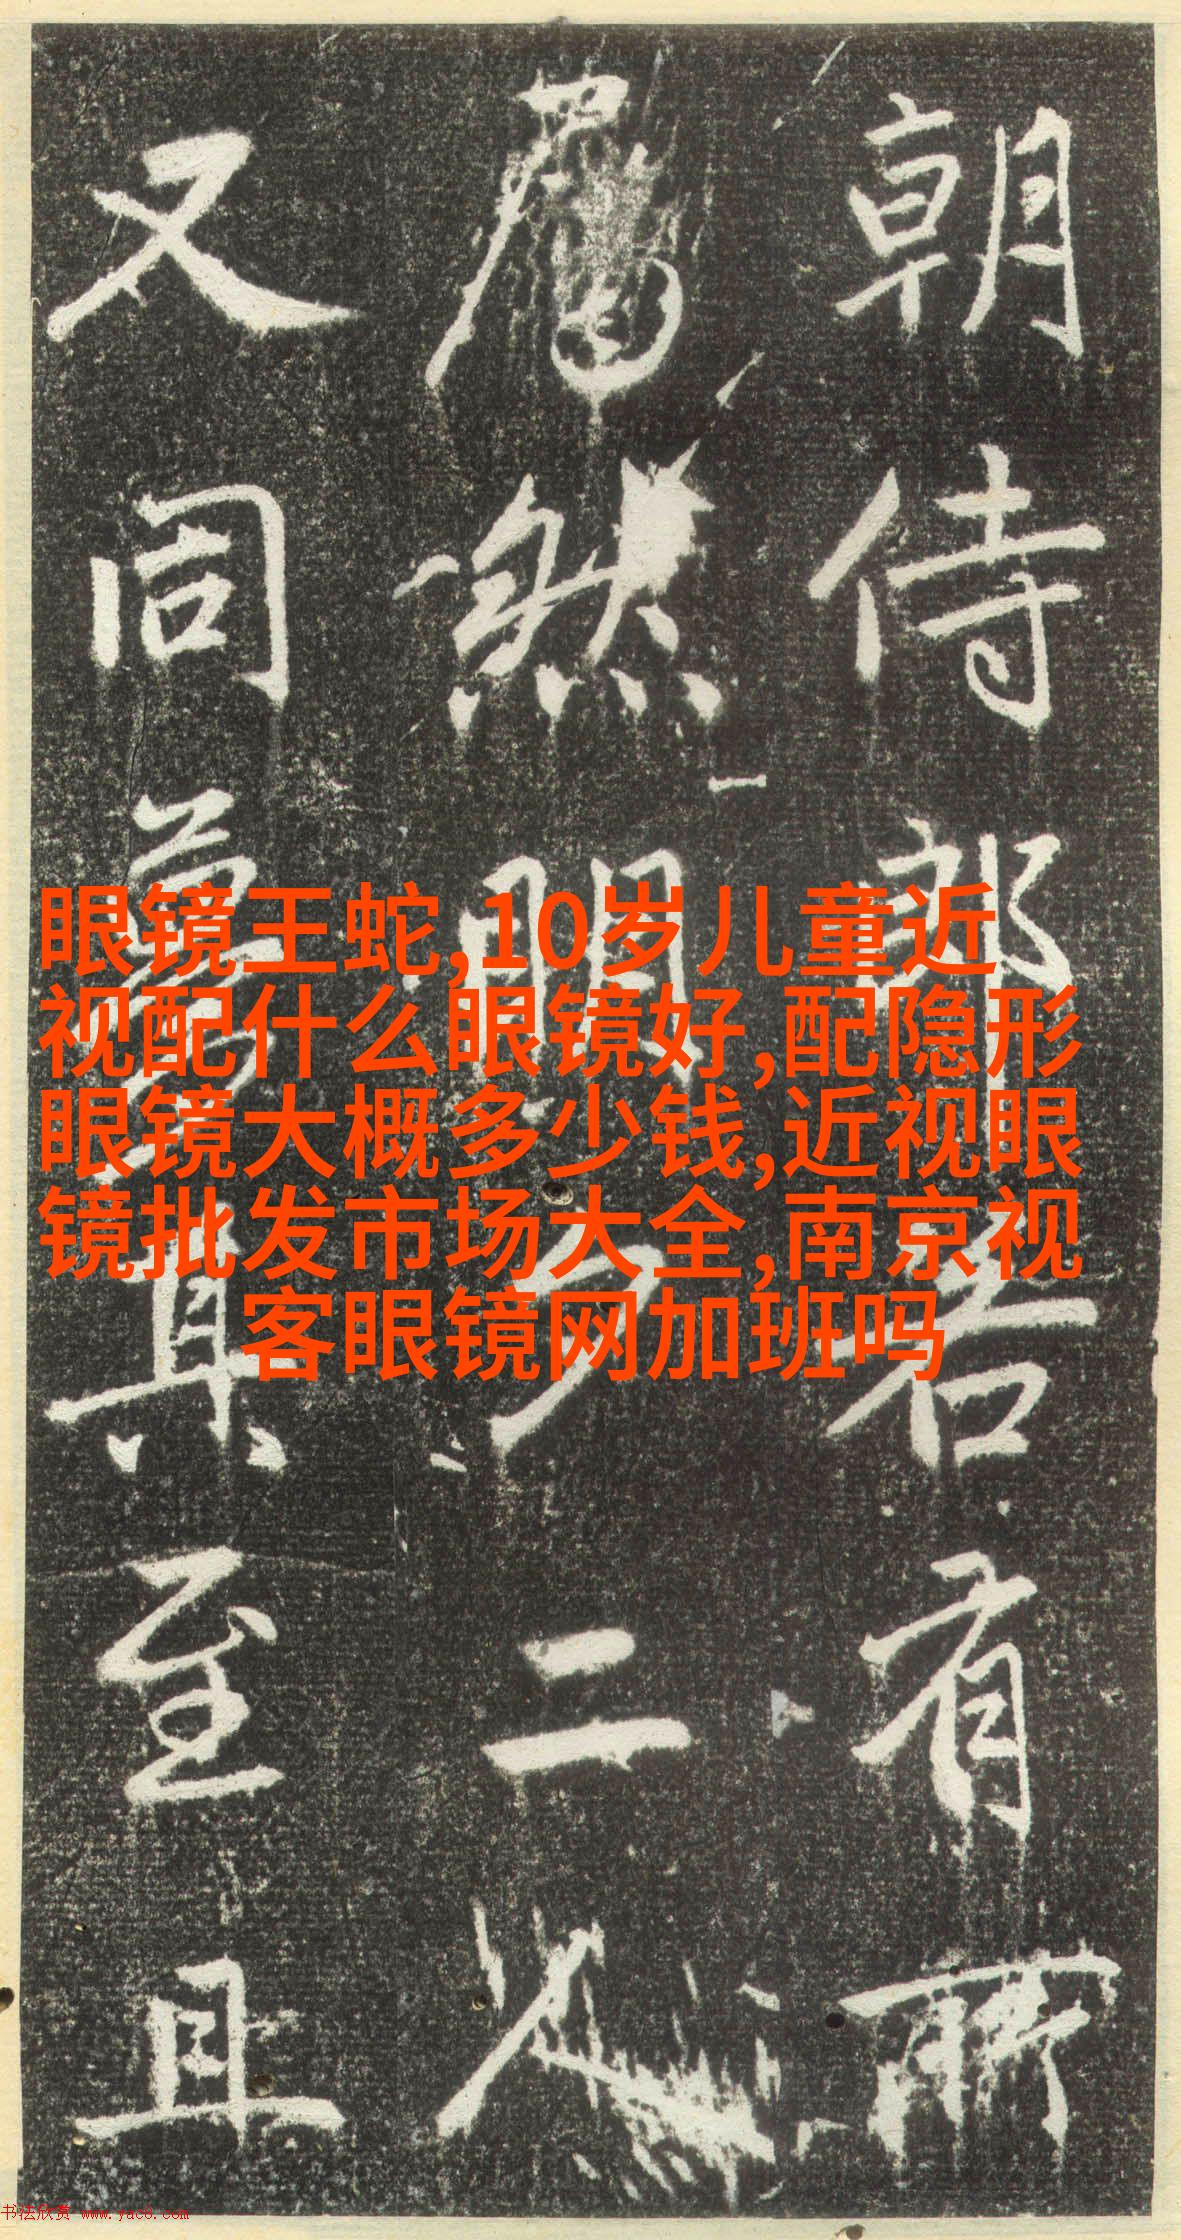 朝侍郎若有所
屬然明夕二人
又同夢其至且
眼镜王蛇,10岁儿童近
视配什么眼镜好,配隐形
眼镜大概多少钱,近视眼
镜批发市场大全,南京视
客眼镜网加班吗
书法欣赏 www.yac8.com